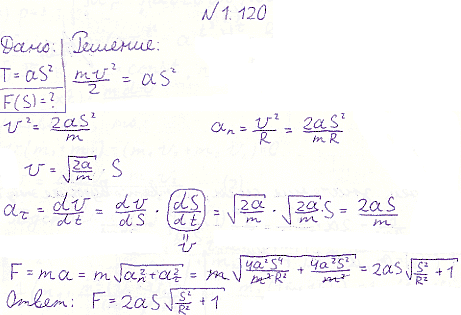 №1.120
Дано: Решение:
T = aS² mv²/2 = aS²
F(S) = ?
v² = 2aS²/m aₙ = v²/R = 2aS²/mR
v = √(2a/m) · S
a_τ = dv/dt = dv/dS · dS/dt = √(2a/m) · √(2a/m) S = 2aS/m
v
F = ma = m√(aₙ² + a_τ²) = m√(4a²S⁴/m²R² + 4a²S²/m²) = 2aS√(S²/R² + 1)
Ответ: F = 2aS√(S²/R² + 1)